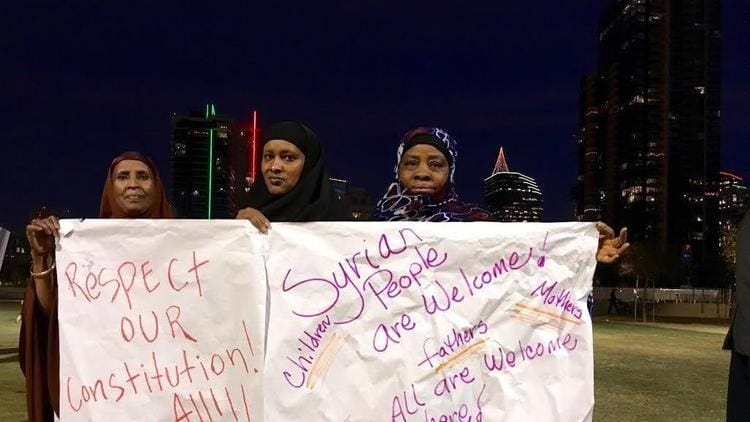 Respect
our
Constitution!
All!!!!
Syrian
People
are Welcome!
Children
Mothers
fathers
All are Welcome
here!